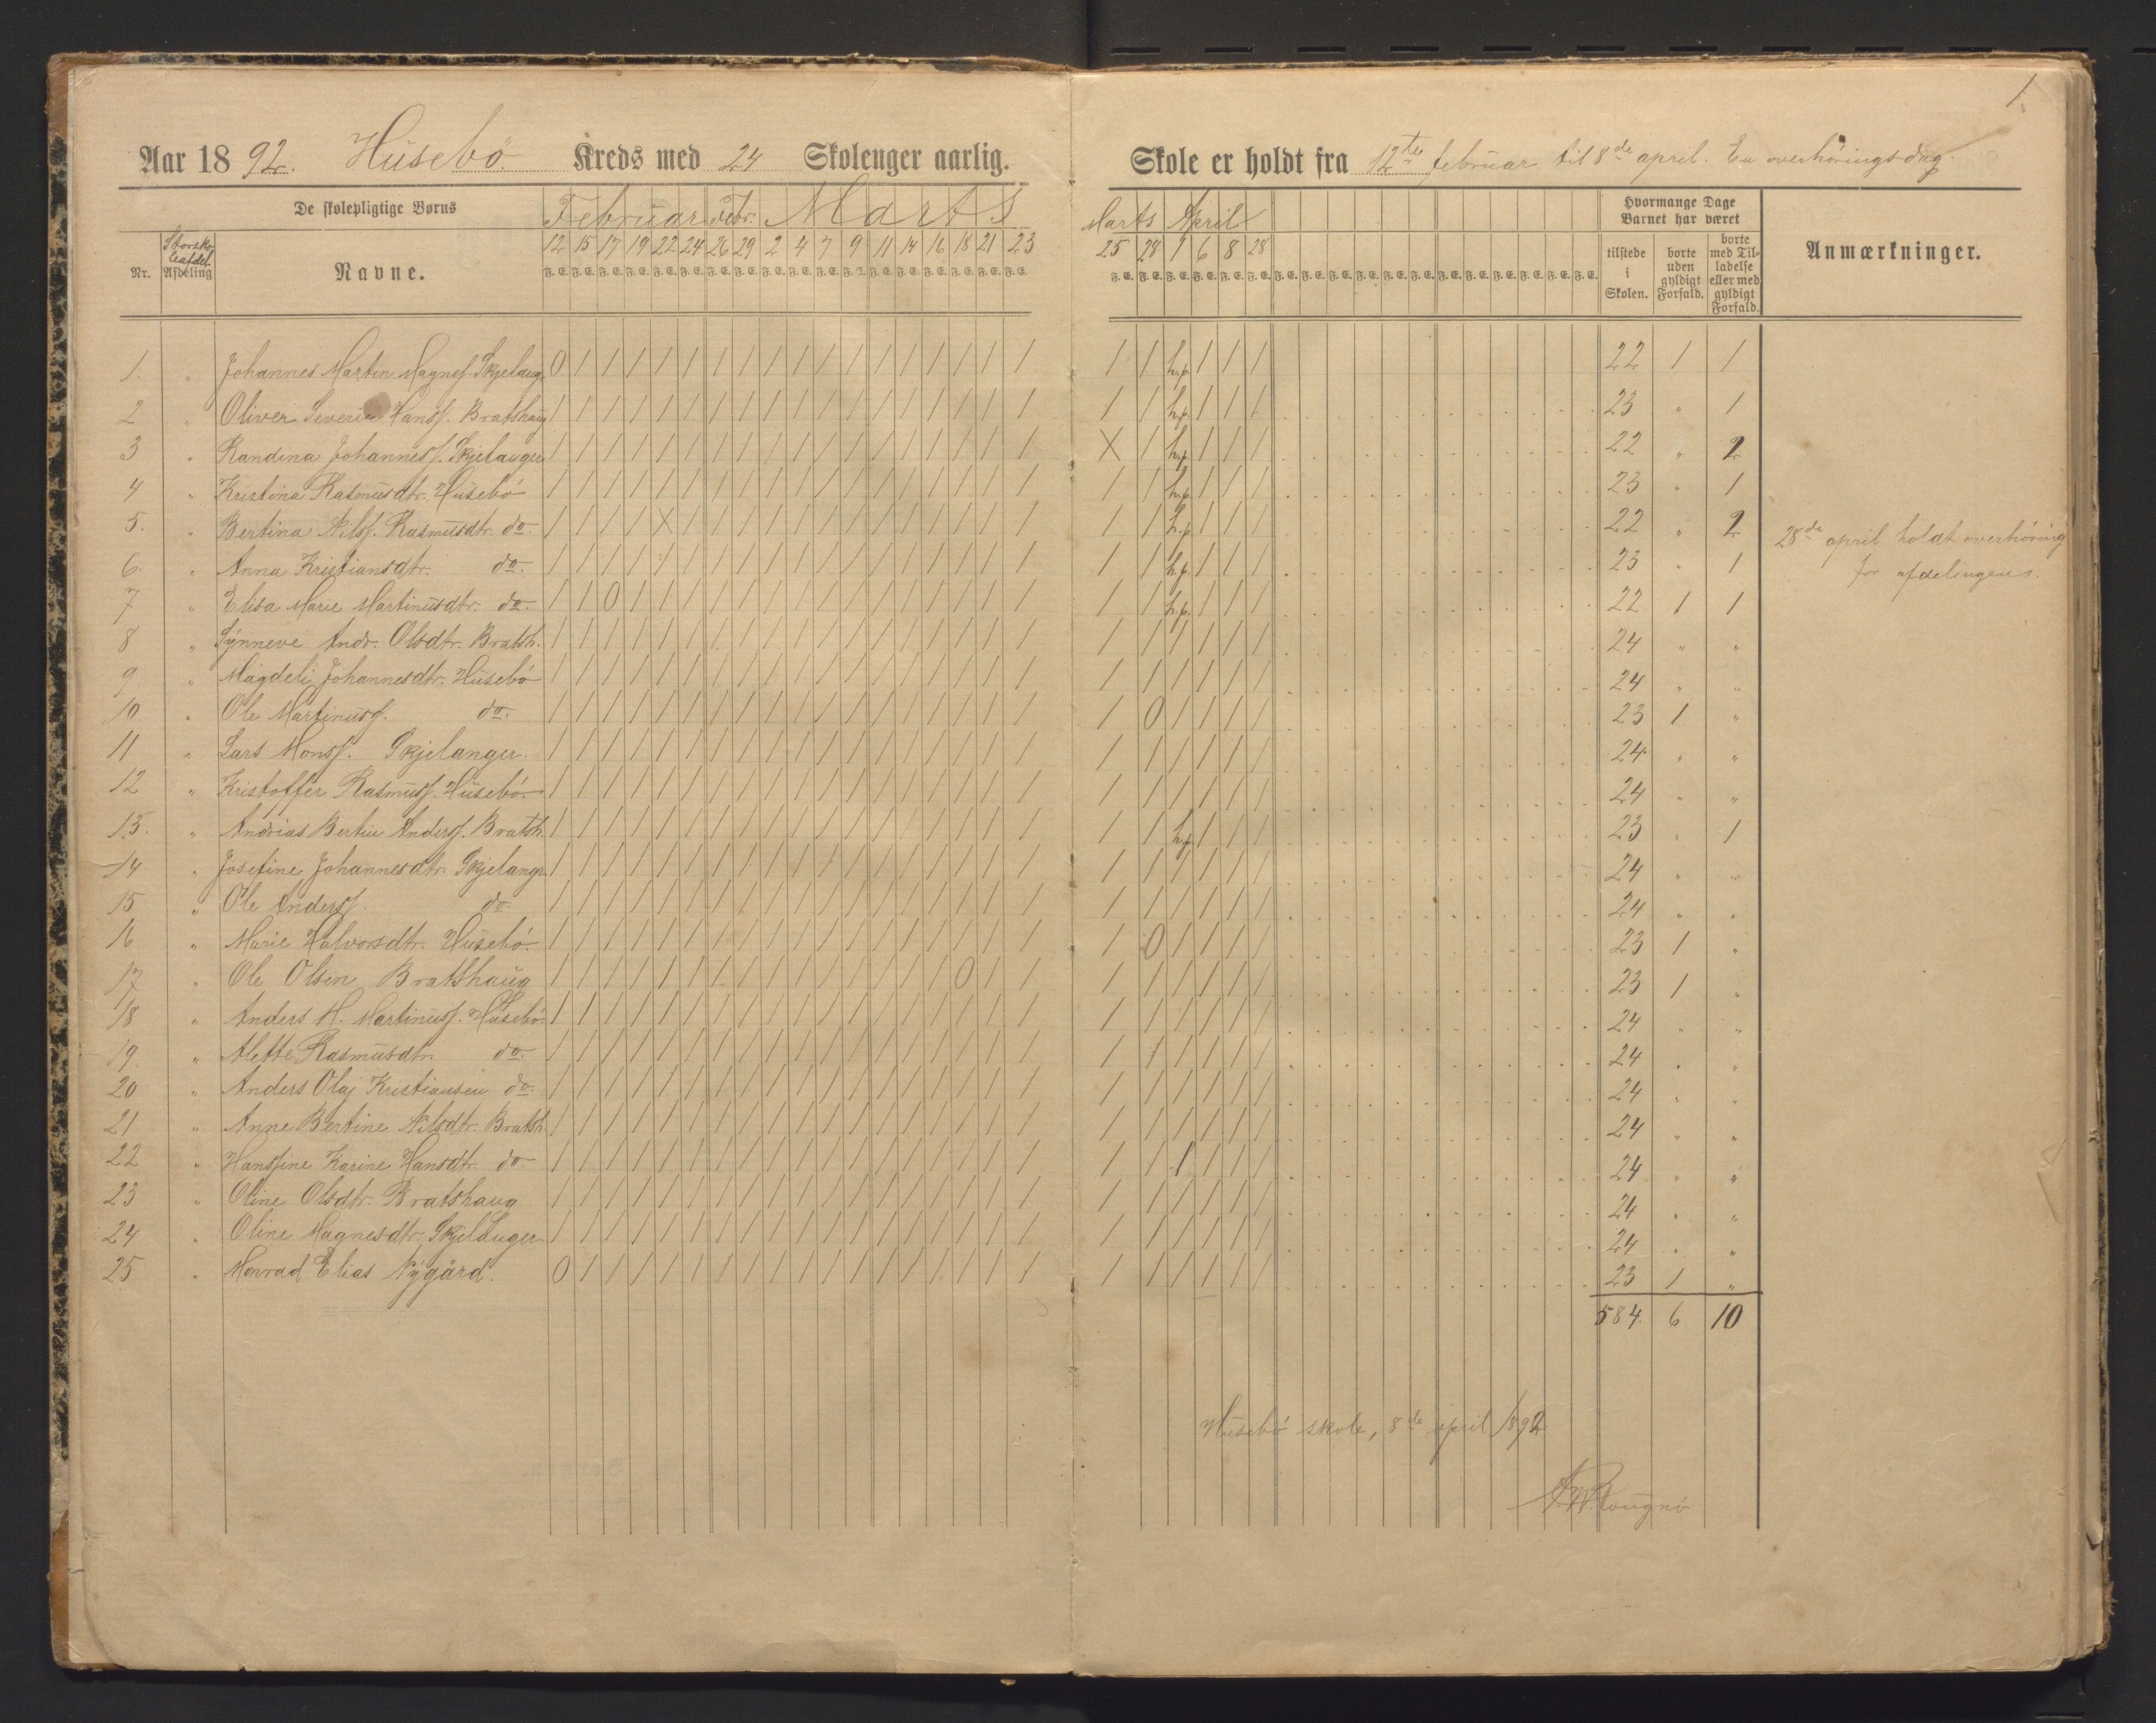 1.
Aar 1892. Husebö Kreds med 24 Skoleuger aarlig.
Skole er holdt fra 12te februar til 8de april. En overhöringsdag.
De skolepligtige Børns
Februar Febr. Marts
Marts April
Hvormange Dage Barnet har været
Nr. Storskoleafdel. Afdeling Navne.
12 15 17 19 22 24 26 29 2 4 7 9 11 14 16 18 21 23
25 28 1 6 8 28
tilstede i Skolen. borte uden gyldigt Forfald. borte med Tilladelse eller med gyldigt Forfald. Anmærkninger.
F. E. F. E. F. E. F. E. F. E. F. E. F. E. F. E. F. E. F. E. F. E. F. E. F. E. F. E. F. E. F. E. F. E. F. E.
F. E. F. E. F. E. F. E. F. E. F. E. F. E. F. E. F. E. F. E. F. E. F. E. F. E. F. E. F. E. F. E. F. E. F. E.
1. " Johannes Martin Magness. Skjelang. 0 / / / / / / / / / / / / / / / / / / / h.f. / / / 22 1 1
2 " Oliver Severin Hanss. Bratshaug / / / / / / / / / / / / / / / / / / / / h.f. / / / 23 " 1
3 " Randina Johanness. Skjelanger / / / / / / / / / / / / / / / / / / X / h.f. / / / 22 " 2
4 " Kristina Rasmusdtr. Husebö / / / / / / / / / / / / / / / / / / / / h.f. / / / 23 " 1
5. " Bertina Nilss. Rasmusdtr. do. / / / / X / / / / / / / / / / / / / / / h.f. / / / 22 " 2
6. " Anna Kristiansdtr. do. / / / / / / / / / / / / / / / / / / / / h.f. / / / 23 " 1
7 " Elisa Marie Martinusdtr. do. / / 0 / / / / / / / / / / / / / / / / / h.f. / / / 22 1 1
8 " Synneve Andr. Olsdtr. Bratsh. / / / / / / / / / / / / / / / / / / / / / / / / 24 " "
9 " Magdeli Johannesdtr. Husebö / / / / / / / / / / / / / / / / / / / / / / / / 24 " "
10 " Ole Martinuss. do. / / / / / / / / / / / / / / / / / / / 0 / / / / 23 1 "
11 " Lars Monss. Skjelanger. / / / / / / / / / / / / / / / / / / / / / / / / 24 " "
12 " Kristoffer Rasmuss. Husebö. / / / / / / / / / / / / / / / / / / / / / / / / 24 " "
13. " Andrias Bertin Anderss. Bratsh. / / / / / / / / / / / / / / / / / / / / h.f. / / / 23 " 1
14 " Josefine Johannesdtr. Skjelangr. / / / / / / / / / / / / / / / / / / / / / / / / 24 " "
15 " Ole Anderss. do. / / / / / / / / / / / / / / / / / / / / / / / / 24 " "
16 " Marie Halvorsdtr. Husebö. / / / / / / / / / / / / / / / / / / / 0 / / / / 23 1 "
17 " Ole Olsen Bratshaug / / / / / / / / / / / / / / / 0 / / / / / / / / 23 1 "
18 " Anders M. Martinuss. Husebö. / / / / / / / / / / / / / / / / / / / / / / / / 24 " "
19 " Alette Rasmusdtr. do. / / / / / / / / / / / / / / / / / / / / / / / / 24 " "
20 " Anders Olaj Kristiansen do. / / / / / / / / / / / / / / / / / / / / / / / / 24 " "
21 " Anne Bertine Nilsdtr. Bratsh. / / / / / / / / / / / / / / / / / / / / / / / / 24 " "
22 " Hansine Karine Hansdtr. do. / / / / / / / / / / / / / / / / / / / / / / / / 24 " "
23 " Oline Olsdtr. Bratshaug / / / / / / / / / / / / / / / / / / / / / / / / 24 " "
24 " Oline Magnesdtr. Skjelanger / / / / / / / / / / / / / / / / / / / / / / / / 24 " "
25 " Monrad Elias Nygård. 0 / / / / / / / / / / / / / / / / / / / / / / / 23 1 "
584. 6 10
28de april holdt overhöring
for afdelingens.
Husebö skole, 8de april 1892